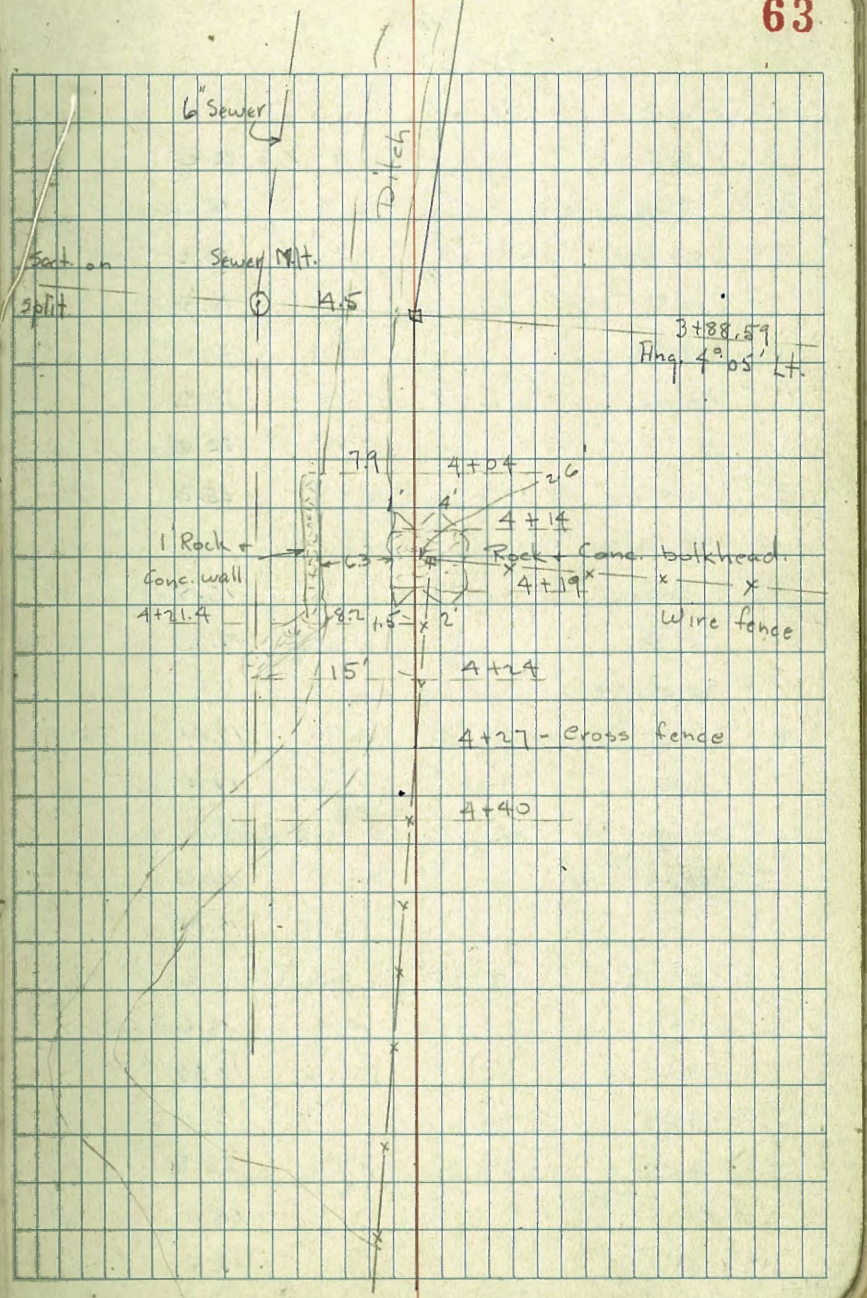 63
6" Sewer
Ditch
Sect. on
split
Sewer M.H.
14.5
3+88.59
Ang. 4°05' Lt.
7.9
4+04
2.6'
1'
4'
4+14
1' Rock +
Conc. wall
6.3
Rock + Conc. bulkhead.
4+19
4+21.4
8.2
1.5
2'
Wire fence
15'
4+24
4+27 - Cross fence
4+40